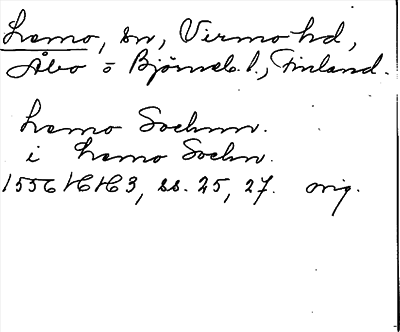 Lemo, sn, Virmo hd,
Åbo o Björneb. l., Finland.
Lemo Sochnn.
i Lemo Sochn.
1556 HH 3, ss. 25, 27. orig.